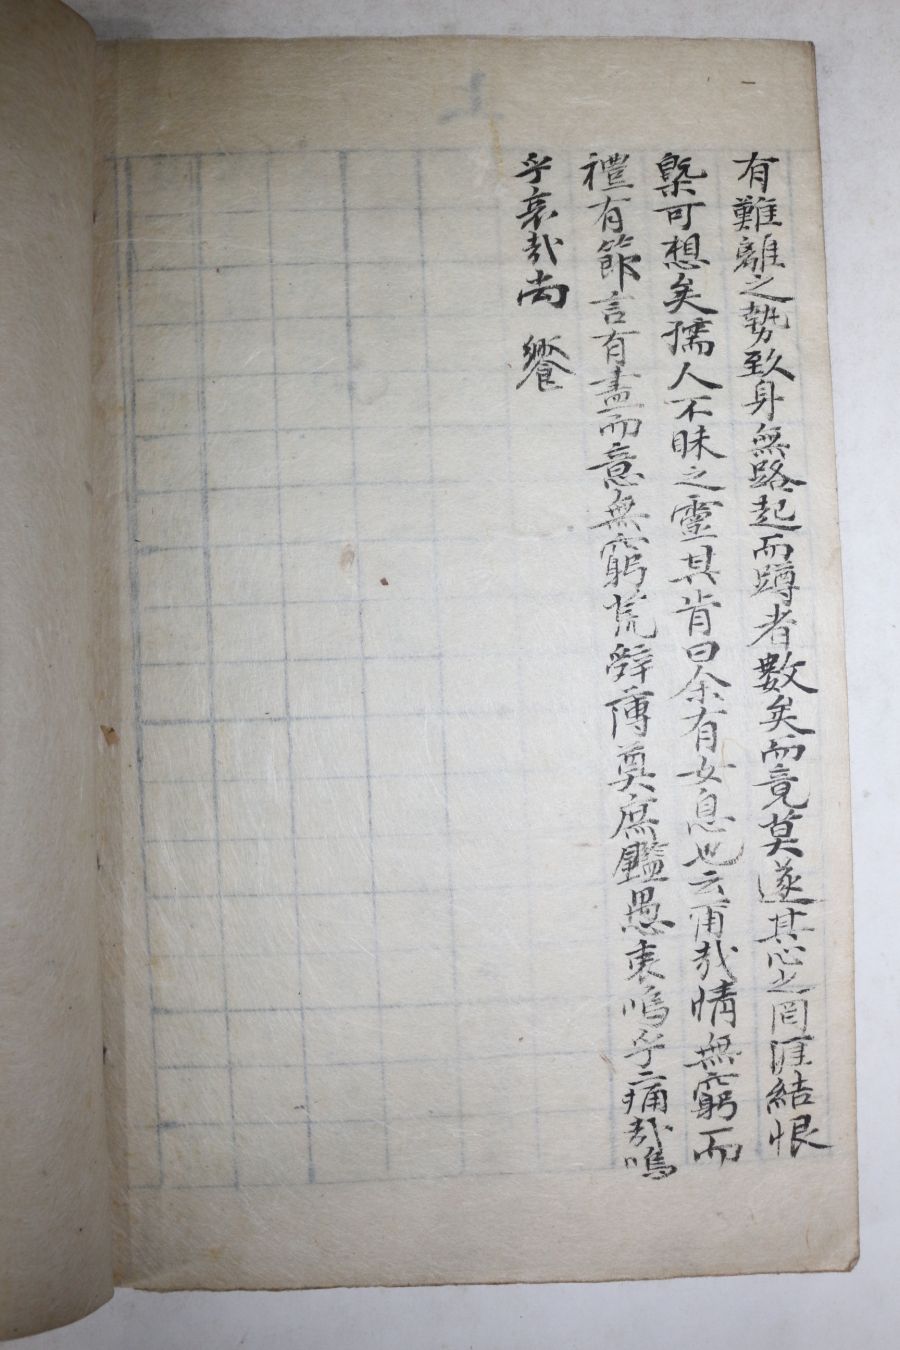 有難離之勢致身無路起而蹲者數矣而竟莫遂其心之罔涯結恨
槩可想矣孺人不昧之靈其肯曰余有女息也云甫哉情無窮而
禮有節言有盡而意無窮荒辭薄奠庶鑑愚衷嗚乎痛哉嗚
乎哀哉尚 饗